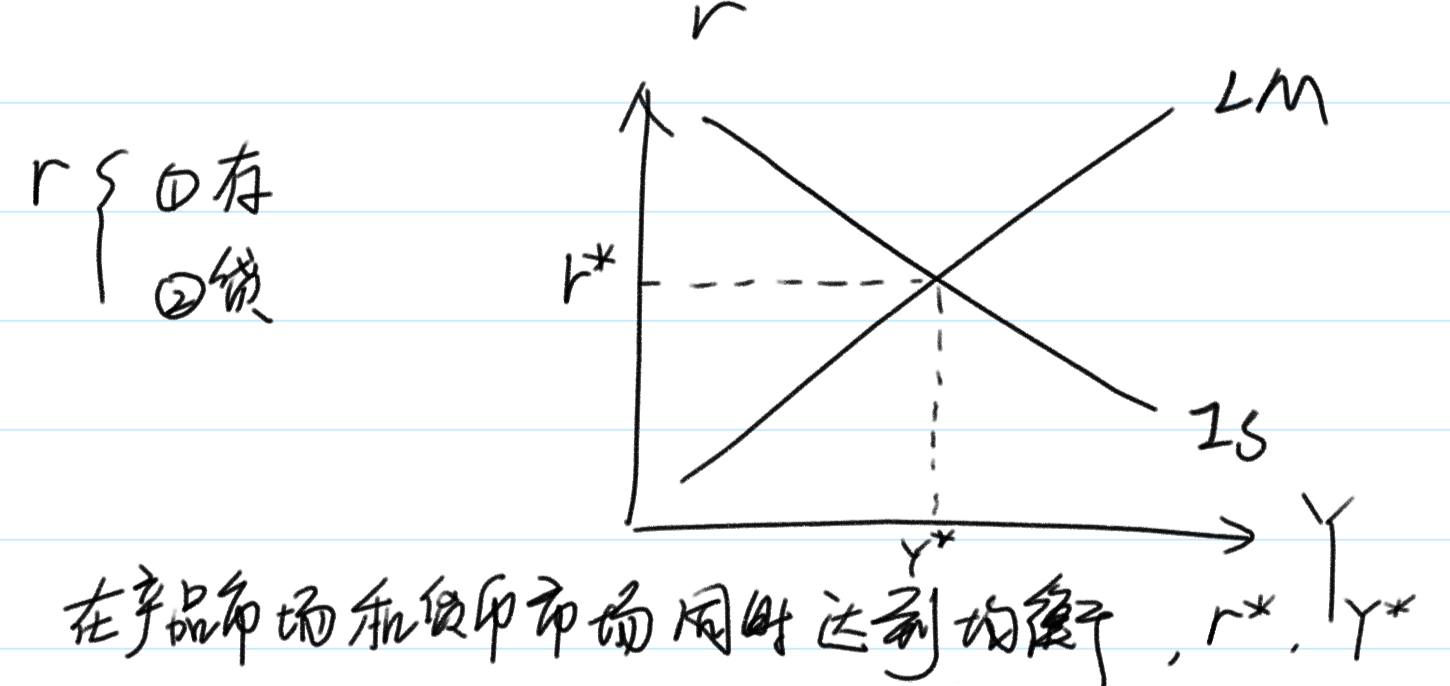 r
LM
r { ①存
②贷
r*
IS
Y*
Y
在产品市场和货币市场同时达到均衡,r*,Y*